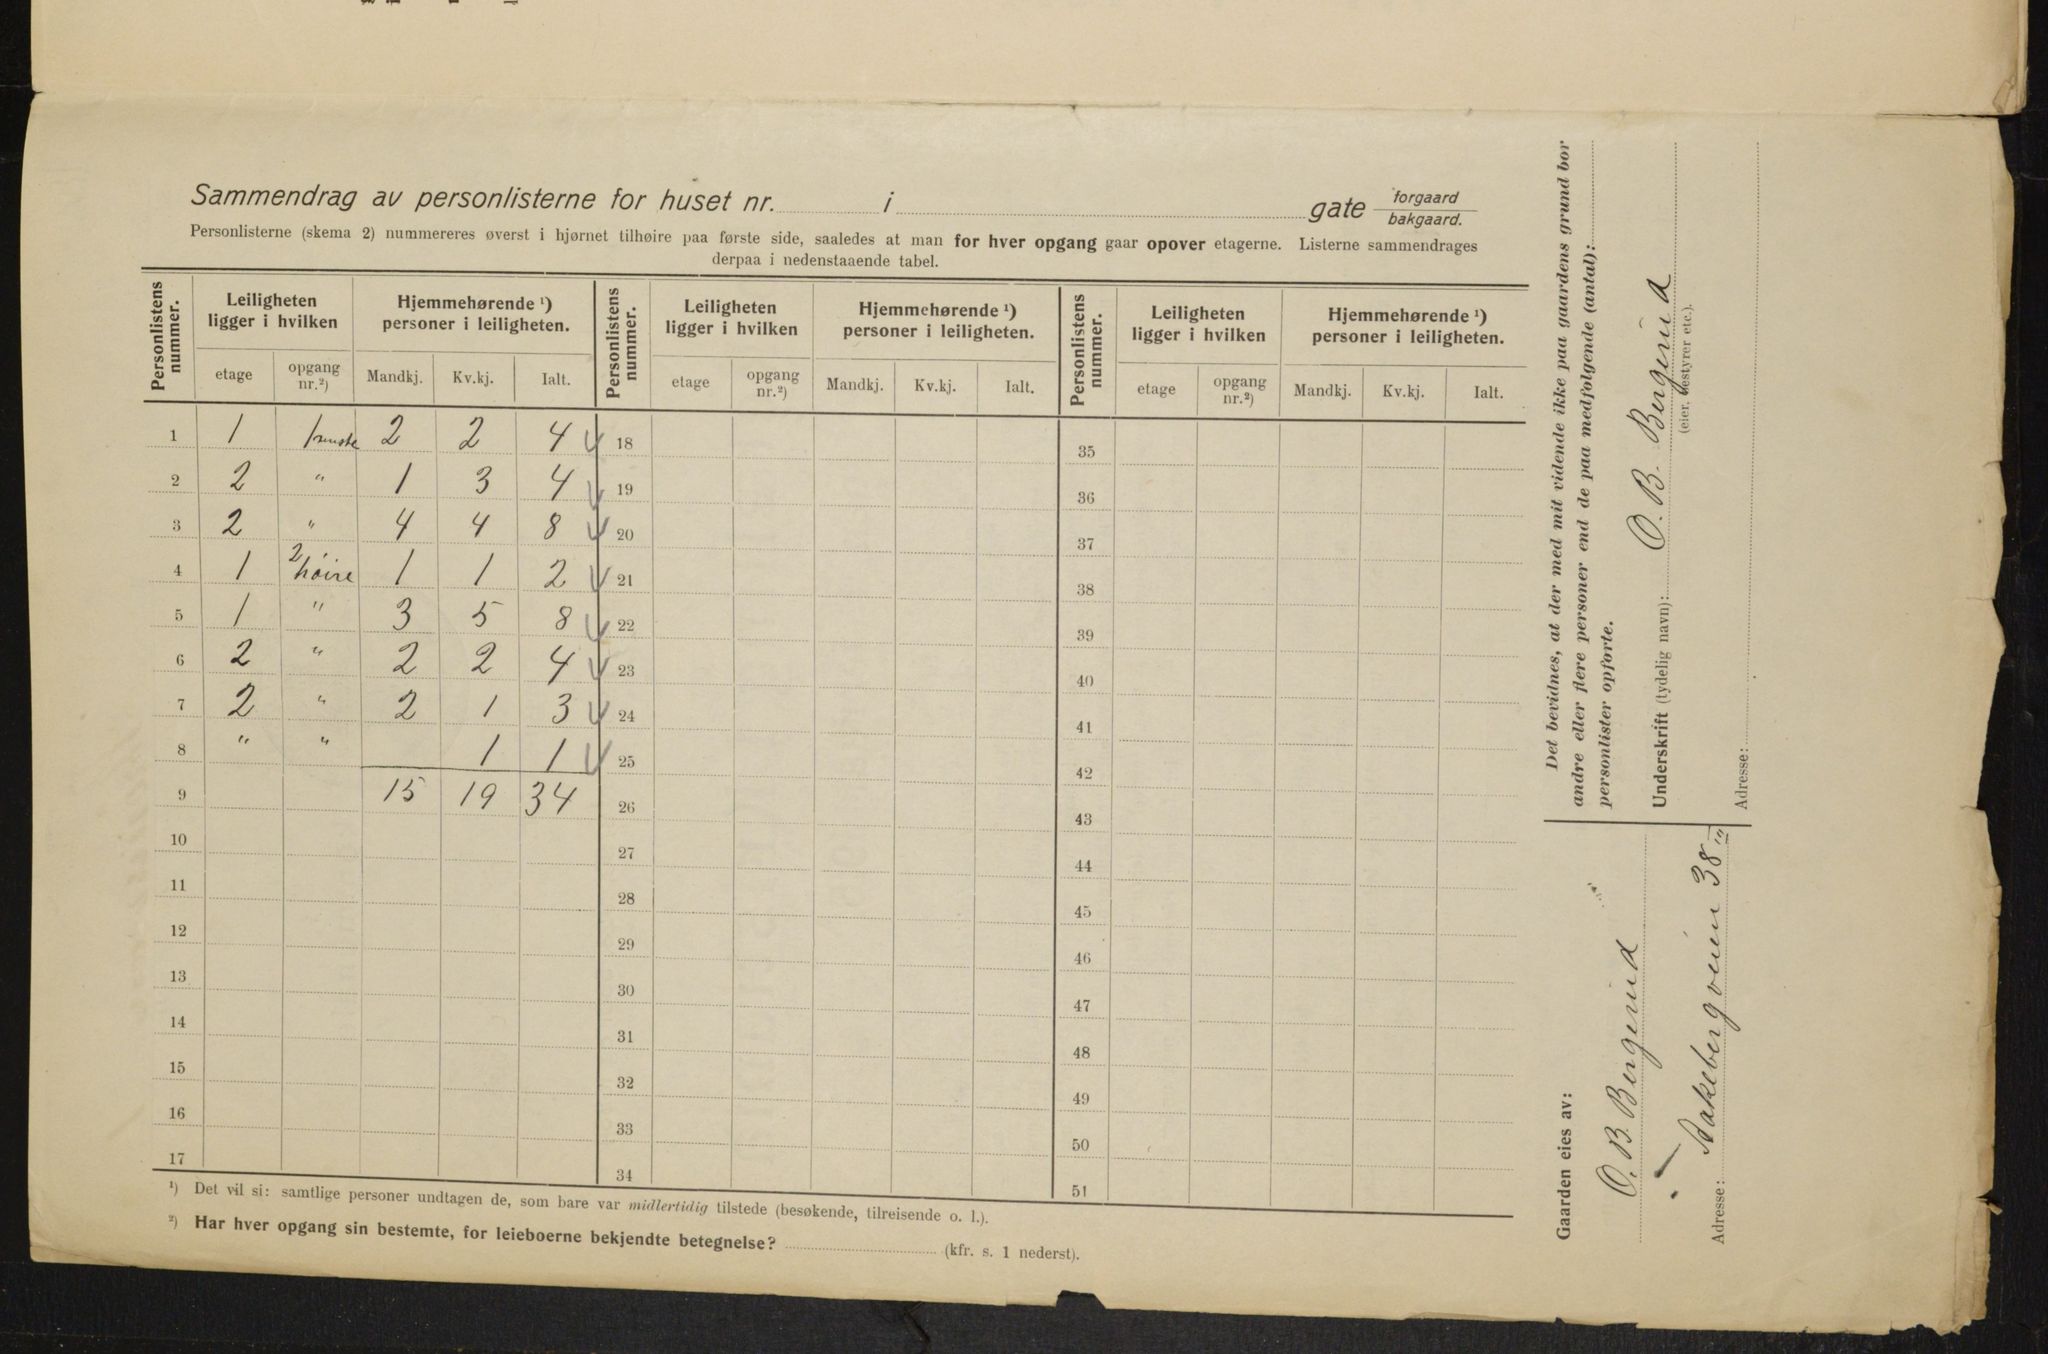 Sammendrag av personlisterne for huset nr. i gate forgaard
bakgaard.
Personlisterne (skema 2) nummereres øverst i hjørnet tilhøire paa første side, saaledes at man for hver opgang gaar opover etagerne. Listerne sammendrages
derpaa i nedenstaaende tabel.
Personlistens nummer. Leiligheten ligger i hvilken Hjemmehørende ¹) personer i leiligheten. Personlistens nummer. Leiligheten ligger i hvilken Hjemmehørende ¹) personer i leiligheten. Personlistens nummer. Leiligheten ligger i hvilken Hjemmehørende ¹) personer i leiligheten.
etage opgang nr.²) Mandkj. Kv.kj. Ialt. etage opgang nr.²) Mandkj. Kv.kj. Ialt. etage opgang nr.²) Mandkj. Kv.kj. Ialt.
1 1 1 2 2 4 18 35
2 2 " 1 3 4 19 36
3 2 " 4 4 8 20 37
4 1 2 høire 1 1 2 21 38
5 1 " 3 5 8 22 39
6 2 " 2 2 4 23 40
7 2 " 2 1 3 24 41
8 " " 1 1 25 42
9 15 19 34 26 43
10 27 44
11 28 45
12 29 46
13 30 47
14 31 48
15 32 49
16 33 50
17 34 51
¹) Det vil si: samtlige personer undtagen de, som bare var midlertidig tilstede (besøkende, tilreisende o. l.).
²) Har hver opgang sin bestemte, for leieboerne bekjendte betegnelse? (kfr. s. 1 nederst).
Det bevidnes, at der med mit vidende ikke paa gaardens grund bor
andre eller flere personer end de paa medfølgende (antal):
personlister opførte.
Underskrift (tydelig navn): O. B. Bergerud
(eier, bestyrer etc.).
Adresse:
Gaarden eies av:
O. B. Bergerud
Adresse: Aakebergveien 38 III